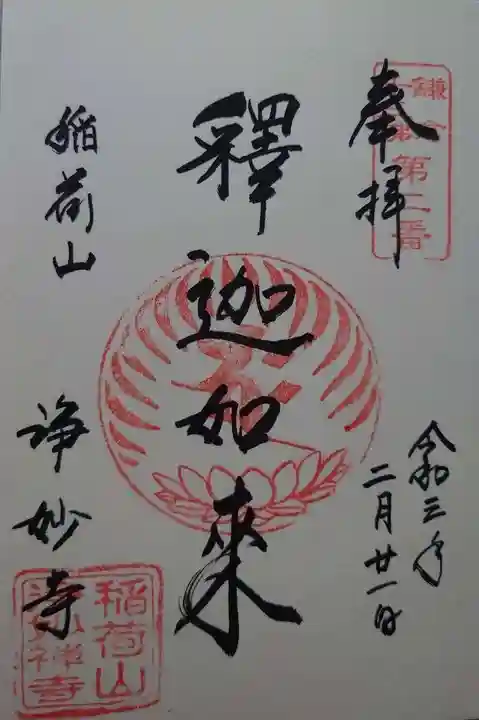 奉拝
鎌倉
十三佛
第二番
令和三年
二月廿一日
釋迦如來
稲荷山
浄妙寺
稲荷山
浄妙禅寺